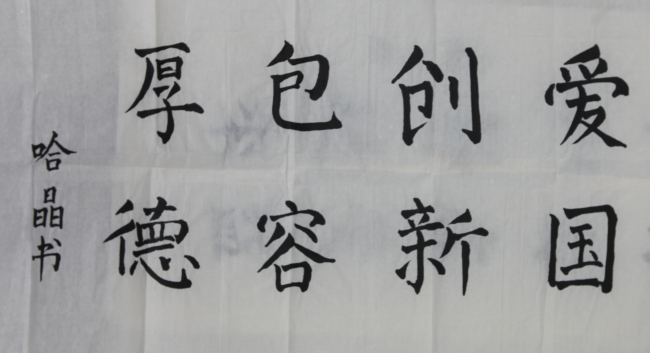 爱国
创新
包容
厚德
哈晶书